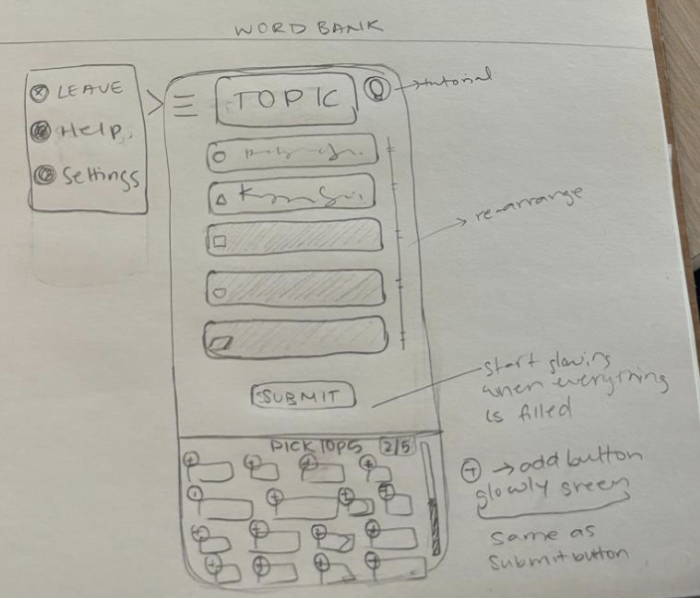 WORD BANK
LEAVE
Help.
Settings
TOPIC
tutorial
re-arrange
SUBMIT
start glowing
when everything
is filled
PICK TOP5 2/5
+ → add button
glowly green
same as
submit button